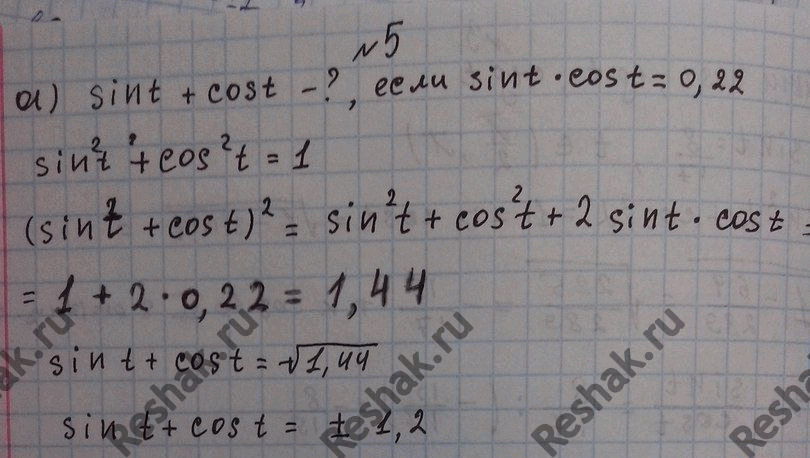 №5
а) sint + cost - ?, если sint · cost = 0,22
sin²t + cos²t = 1
(sint + cost)² = sin²t + cos²t + 2 sint · cost =
= 1 + 2 · 0,22 = 1,44
sint + cost = √1,44
sint + cost = ± 1,2
Reshak.ru
Reshak.ru
Reshak.ru